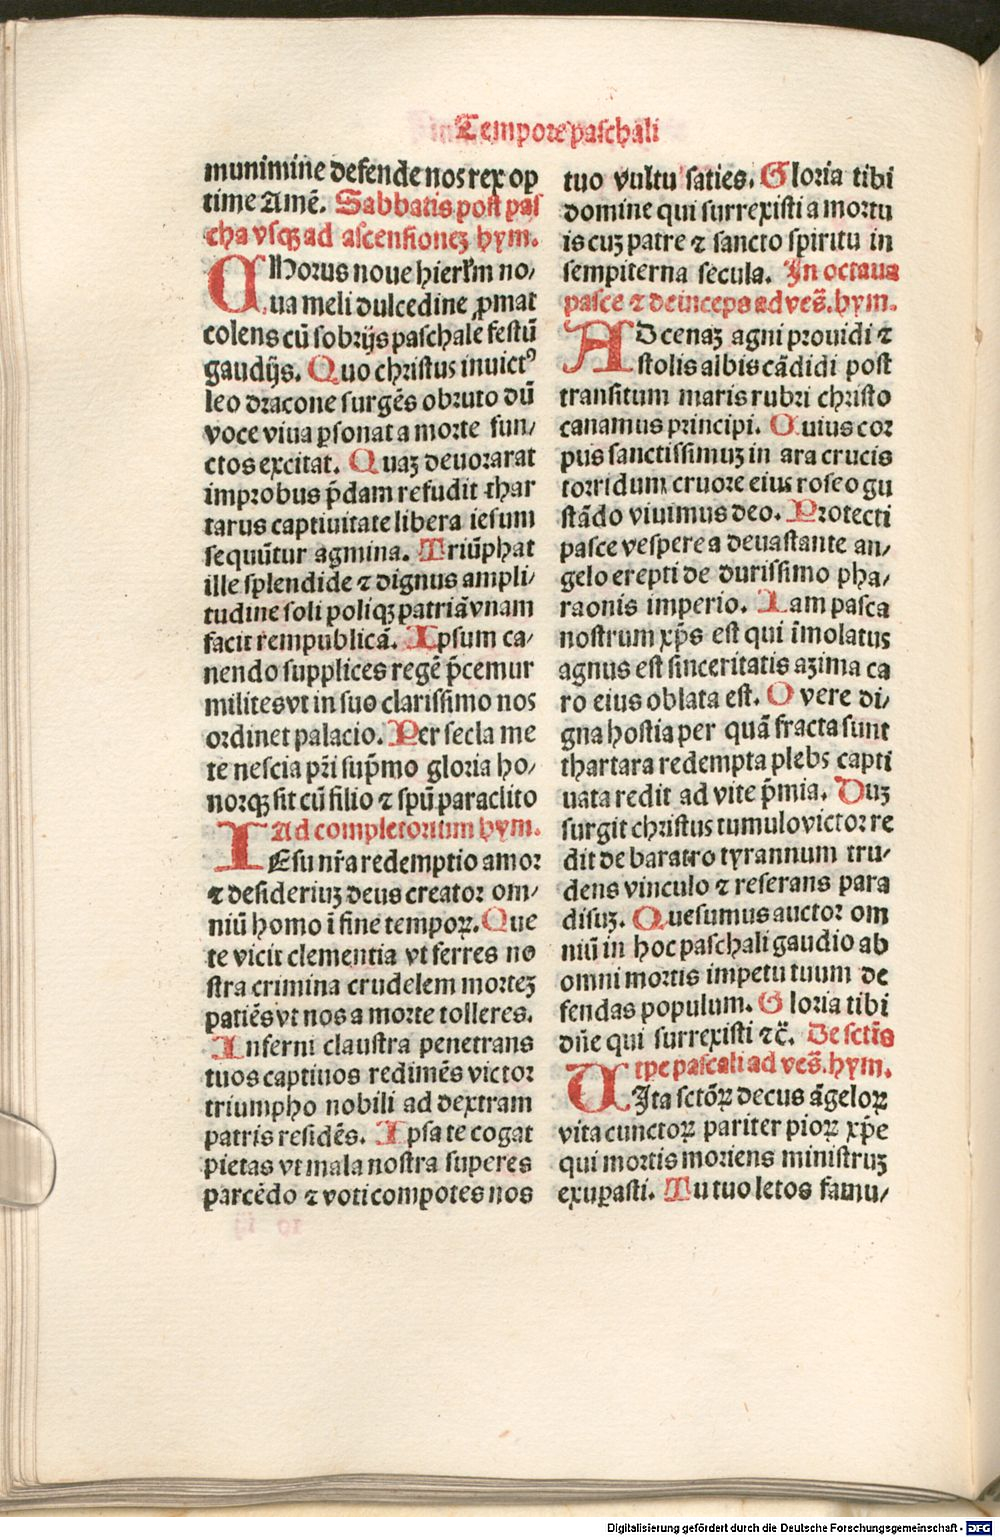 Tempore paschali
munimine defende nos rex op
time Amē. Sabbatis post pas
cha vsqꝫ ad ascensioneꝫ hym.
CHorus noue hierlm no⸗
ua meli dulcedine ꝓmat
colens cū sobrijs paschale festū
gaudijs. Quo christus inuictꝰ
leo dracone surgēs obruto dū
voce viua ꝑsonat a morte fun⸗
ctos excitat. Quaꝫ deuorarat
improbus p̄dam refudit thar
tarus captiuitate libera iesum
sequūtur agmina. Triūphat
ille splendide ⁊ dignus ampli⸗
tudine soli poliqꝫ patriā vnam
facit rempublicā. Ipsum ca⸗
nendo supplices regē p̄cemur
milites vt in suo clarissimo nos
ordinet palacio. Per secla me
te nescia pr̄i sup̄mo gloria ho⸗
norqꝫ sit cū filio ⁊ spū paraclito
Ad completorium hym.
IEsu nr̄a redemptio amor
⁊ desideriuꝫ deus creator om⸗
niū homo ī fine tempoꝝ. Que
te vicit clementia vt ferres no
stra crimina crudelem morteꝫ
patiēs vt nos a morte tolleres.
Inferni claustra penetrans
tuos captiuos redimēs victor
triumpho nobili ad dextram
patris residēs. Ipsa te cogat
pietas vt mala nostra superes
parcēdo ⁊ voti compotes nos
tuo vultu saties. Gloria tibi
domine qui surrexisti a mortu
is cuꝫ patre ⁊ sancto spiritu in
sempiterna secula. In octaua
pasce ⁊ deinceps ad ves̄. hym.
AD cenaꝫ agni prouidi ⁊
stolis albis cādidi post
transitum maris rubri christo
canamus principi. Cuius cor
pus sanctissimuꝫ in ara crucis
torridum cruore eius roseo gu
stādo viuimus deo. Protecti
pasce vespere a deuastante an⸗
gelo erepti de durissimo pha⸗
raonis imperio. Iam pasca
nostrum xp̄s est qui īmolatus
agnus est sinceritatis azima ca
ro eius oblata est. O vere di⸗
gna hostia per quā fracta sunt
thartara redempta plebs capti
uata redit ad vite p̄mia. Cuꝫ
surgit christus tumulo victor re
dit de baratro tyrannum tru⸗
dens vinculo ⁊ reserans para
disuꝫ. Quesumus auctor om
niū in hoc paschali gaudio ab
omni mortis impetu tuum de
fendas populum. Gloria tibi
dn̄e qui surrexisti ⁊c̄. De sctīs
tp̄e pascali ad ves̄. hym.
UIta sctōꝝ decus āgeloꝝ
vita cunctoꝝ pariter pioꝝ xp̄e
qui mortis moriens ministruꝫ
exuꝑasti. Tu tuo letos famu⸗
Digitalisierung gefördert durch die Deutsche Forschungsgemeinschaft - DFG